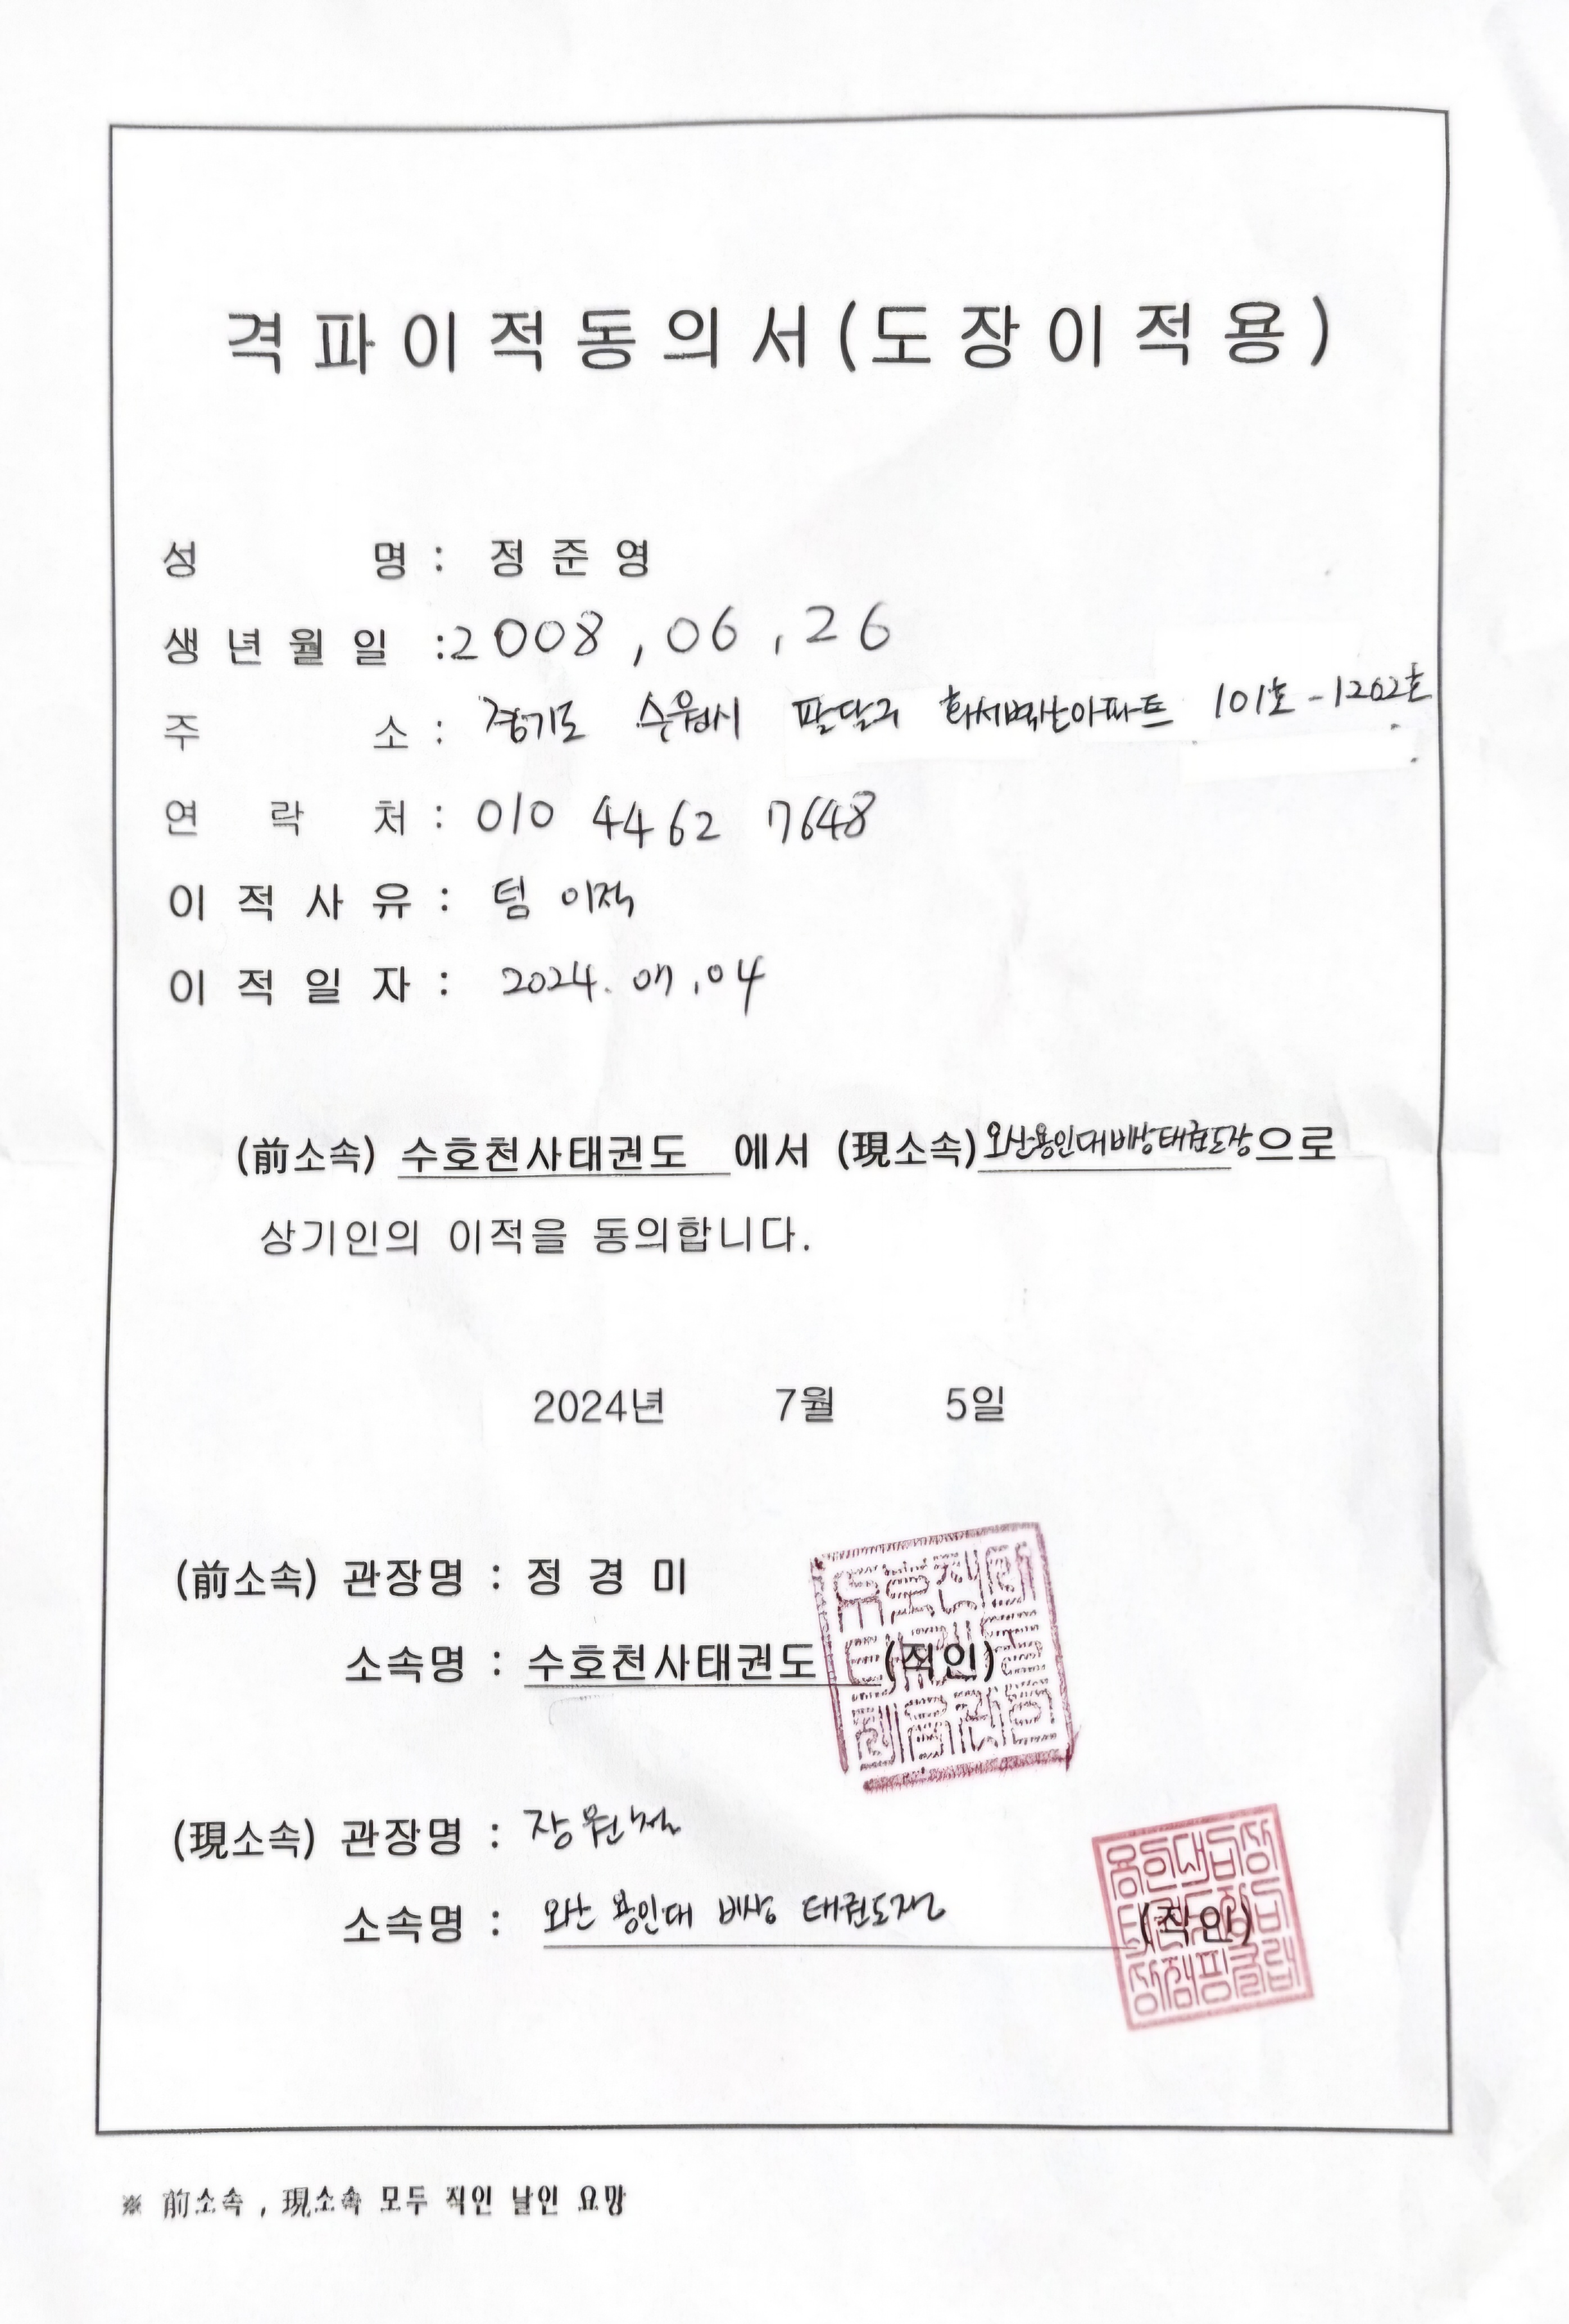 격파이적동의서(도장이적용)
성 명 : 정 준 영
생년월일 :2008,06,26
주 소 : 경기도 수원시 팔달구 화서벽산아파트 101호-1202호
연 락 처 : 010 4462 7648
이적사유 : 팀 이적
이적일자 : 2024.07.04
(前소속) 수호천사태권도 에서 (現소속)오산용인대비상태권도장으로
상기인의 이적을 동의합니다.
2024년 7월 5일
(前소속) 관장명 : 정 경 미
소속명 : 수호천사태권도 (직인)
(現소속) 관장명 : 장
소속명 : 오산 용인대 비상 태권도장 (직인)
※ 前소속 , 現소속 모두 직인 날인 요망